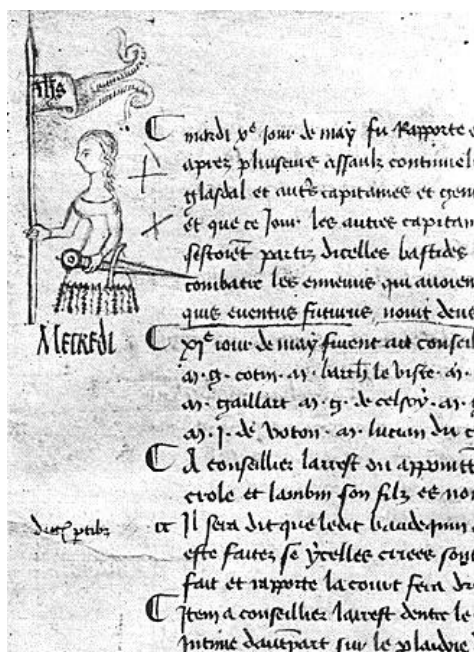 Jhs
mardi xe jour de may fu Rapporte
apres pluseurs assaulz continuel
glasdal et autres capitaines et gen
et que ce Jour les autres capitai
sestoient partiz dicelles bastides
combatre les ennemis qui avoien
quis eventus futurus novit deus
Mercredi
xje jour de may furent au conseil
m. g. cotin m. barth le viste m.
m. gaillart m. g. de celsoy m.
m. J. de voton m. lucian du
A conseillier larrest ou appoinct
et lambin son filz es no
Il sera dit que ledit baudequin
este faites se ycelles criees sont
fait et rapporte la court fera dr
Item a conseillier larrest dentre le
Intime dautrepart sur le plaidoie